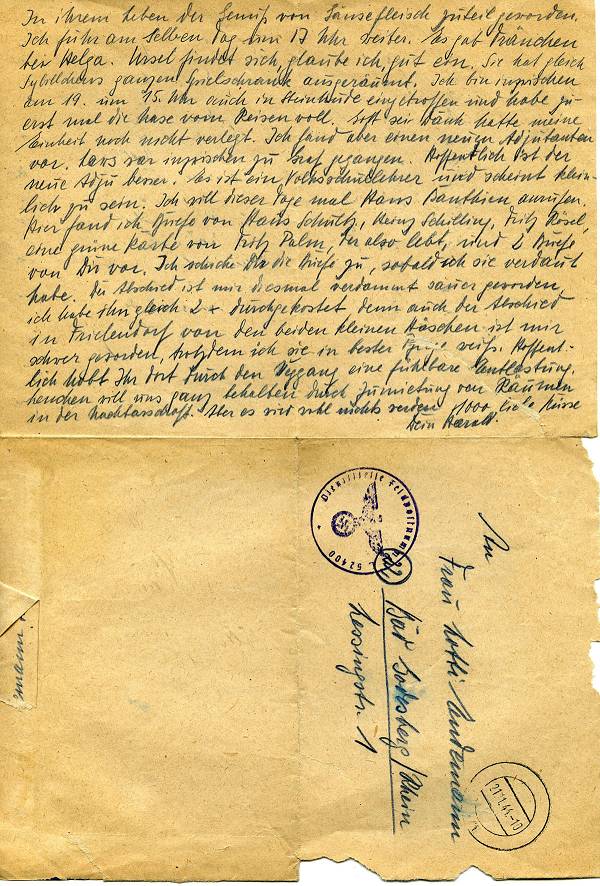 In ihrem Leben der Genuß von Gänsefleisch zuteil geworden.
Ich fuhr am selben Tag um 17 Uhr weiter. Es gab Tränchen
bei Helga. Ursel findet sich, glaube ich, gut ein. Sie hat gleich
Sybillchens ganzen Spielschrank ausgeräumt. Ich bin inzwischen
am 19. um 15. Uhr auch in Steinhude eingetroffen und habe zu-
erst mal die Nase vom Reisen voll. Gott sei Dank hatte meine
Einheit noch nicht verlegt. Ich fand aber einen neuen Adjutanten
vor. war inzwischen zu gegangen. Hoffentlich ist der
neue Adju besser. Es ist ein Volksschullehrer und scheint klein-
lich zu sein. Ich will dieser Tage mal Hans Banthien anrufen.
Hier fand ich Briefe von Hans Schultz, Heinz Schilling, Fritz
eine grüne Karte von Fritz Palm, der also lebt, und 2 Briefe
von Dir vor. Ich schicke Dir die Briefe zu, sobald ich sie verdaut
habe. Der Abschied ist mir diesmal verdammt sauer geworden,
ich habe ihn gleich 2 x durchgekostet, denn auch der Abschied
in Frielendorf von den beiden kleinen Häschen ist mir
schwer geworden, trotzdem ich sie in bester weiß. Hoffent-
lich habt Ihr dort durch den eine fühlbare Entlastung.
will uns ganz behalten durch Zumietung von Räumen
in der Nachbarschaft. Aber es wird wohl nichts werden 1000 liebe Küsse
Dein Harald.
Dienststelle Feldpostnummer
L 52400
An
Frau Lotti
(22) Bad Godesberg/Rhein
Lessingstr. 1
21.1.44.-10